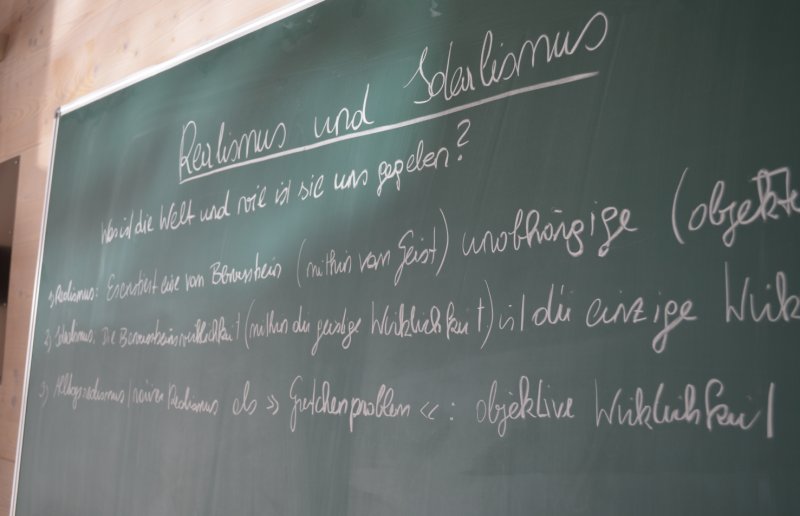 Realismus und Idealismus
Was ist die Welt und wie ist sie uns gegeben?
1) Realismus: Es existiert eine vom Bewusstsein (mithin vom Geist) unabhängige (objekti
2) Idealismus: Die Bewusstseinswirklichkeit (mithin die geistige Wirklichkeit) ist die einzige Wirk
3) Alltagsrealismus/naiver Realismus als » Gretchenproblem «: objektive Wirklichkeit